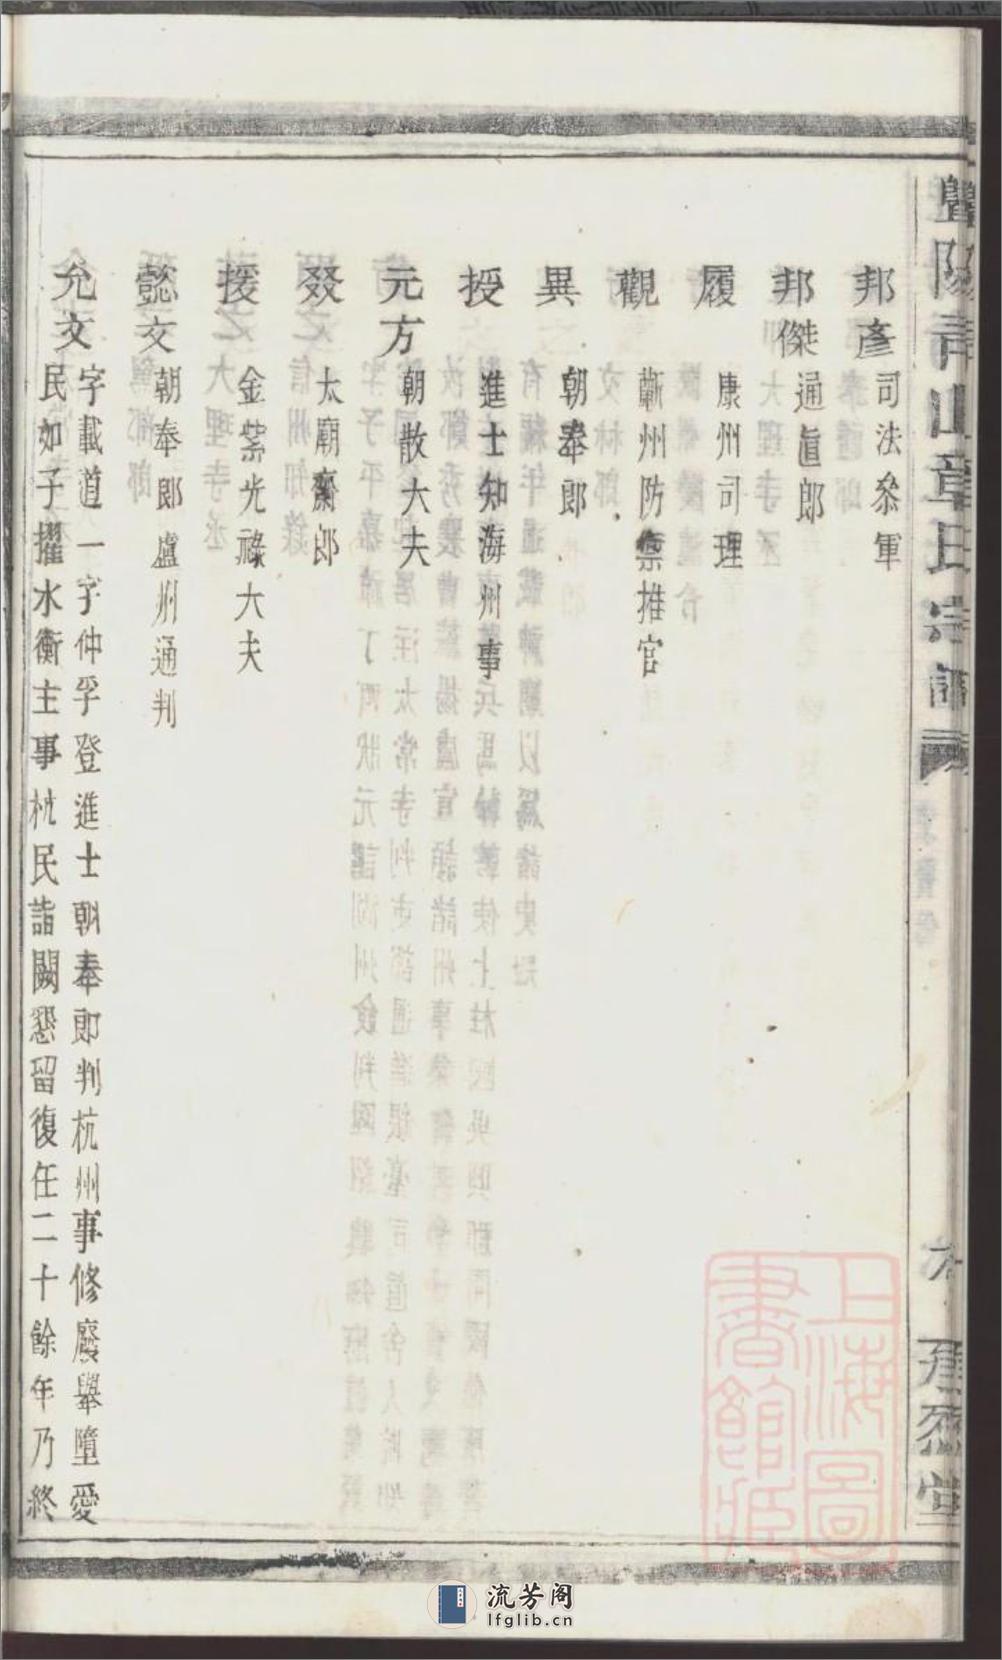 邦彥 司法叅軍
邦傑 通直郎
履 康州司理
觀 蘄州防禦推官
異 朝奉郎
授 進士知海州事
元方 朝散大夫
㸚 太廟齋郎
援 金紫光祿大夫
懿文 朝奉郎盧州通判
允文 字載道一字仲孚登進士朝奉郎判杭州事修廢舉墮愛
民如子擢水衡主事杭民詣闕懇留復任二十餘年乃終
上海圖
書館藏
流芳阁
lfglib.cn